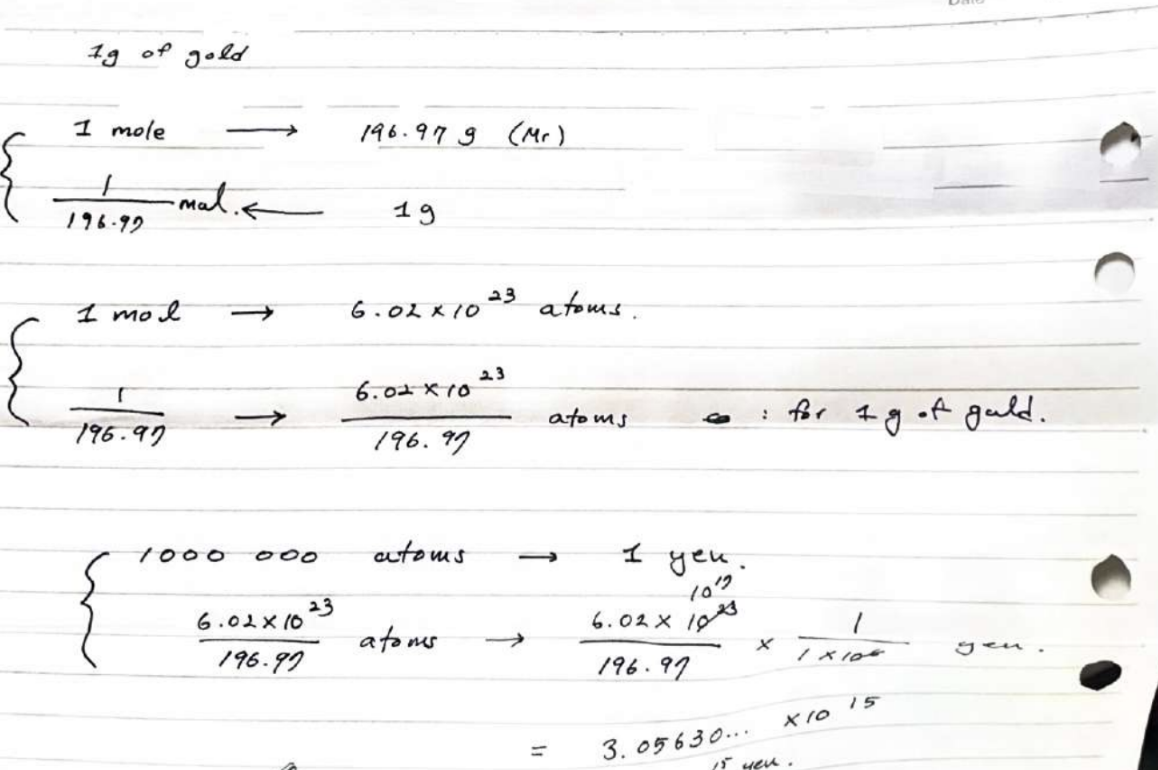 1g of gold
1 mole → 196.97 g (Mr)
1/196.97 mol. ← 1g
1 mol → 6.02 × 10^23 atoms.
1/196.97 → 6.02 × 10^23/196.97 atoms : for 1 g of gold.
1000 000 atoms → 1 yen.
10^17
6.02 × 10^23/196.97 atoms → 6.02 × 10^23/196.97 × 1/1 × 10^6 yen.
= 3.05630... × 10^15
15 yen.